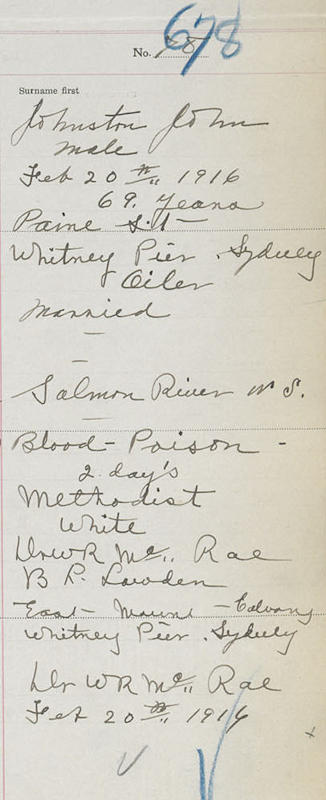 678
No. 78
Surname first
Johnston John
male
Feb 20th 1916
69. Years
Paine St
Whitney Pier. Sydney
Oiler
Married
Salmon River N S.
Blood-Poison -
2 day's
Methodist
White
Dr W R Mc Rae
B P. Lowden
East Mount - Calvary
Whitney Pier. Sydney
Dr W R Mc Rae
Feb 20th 1916